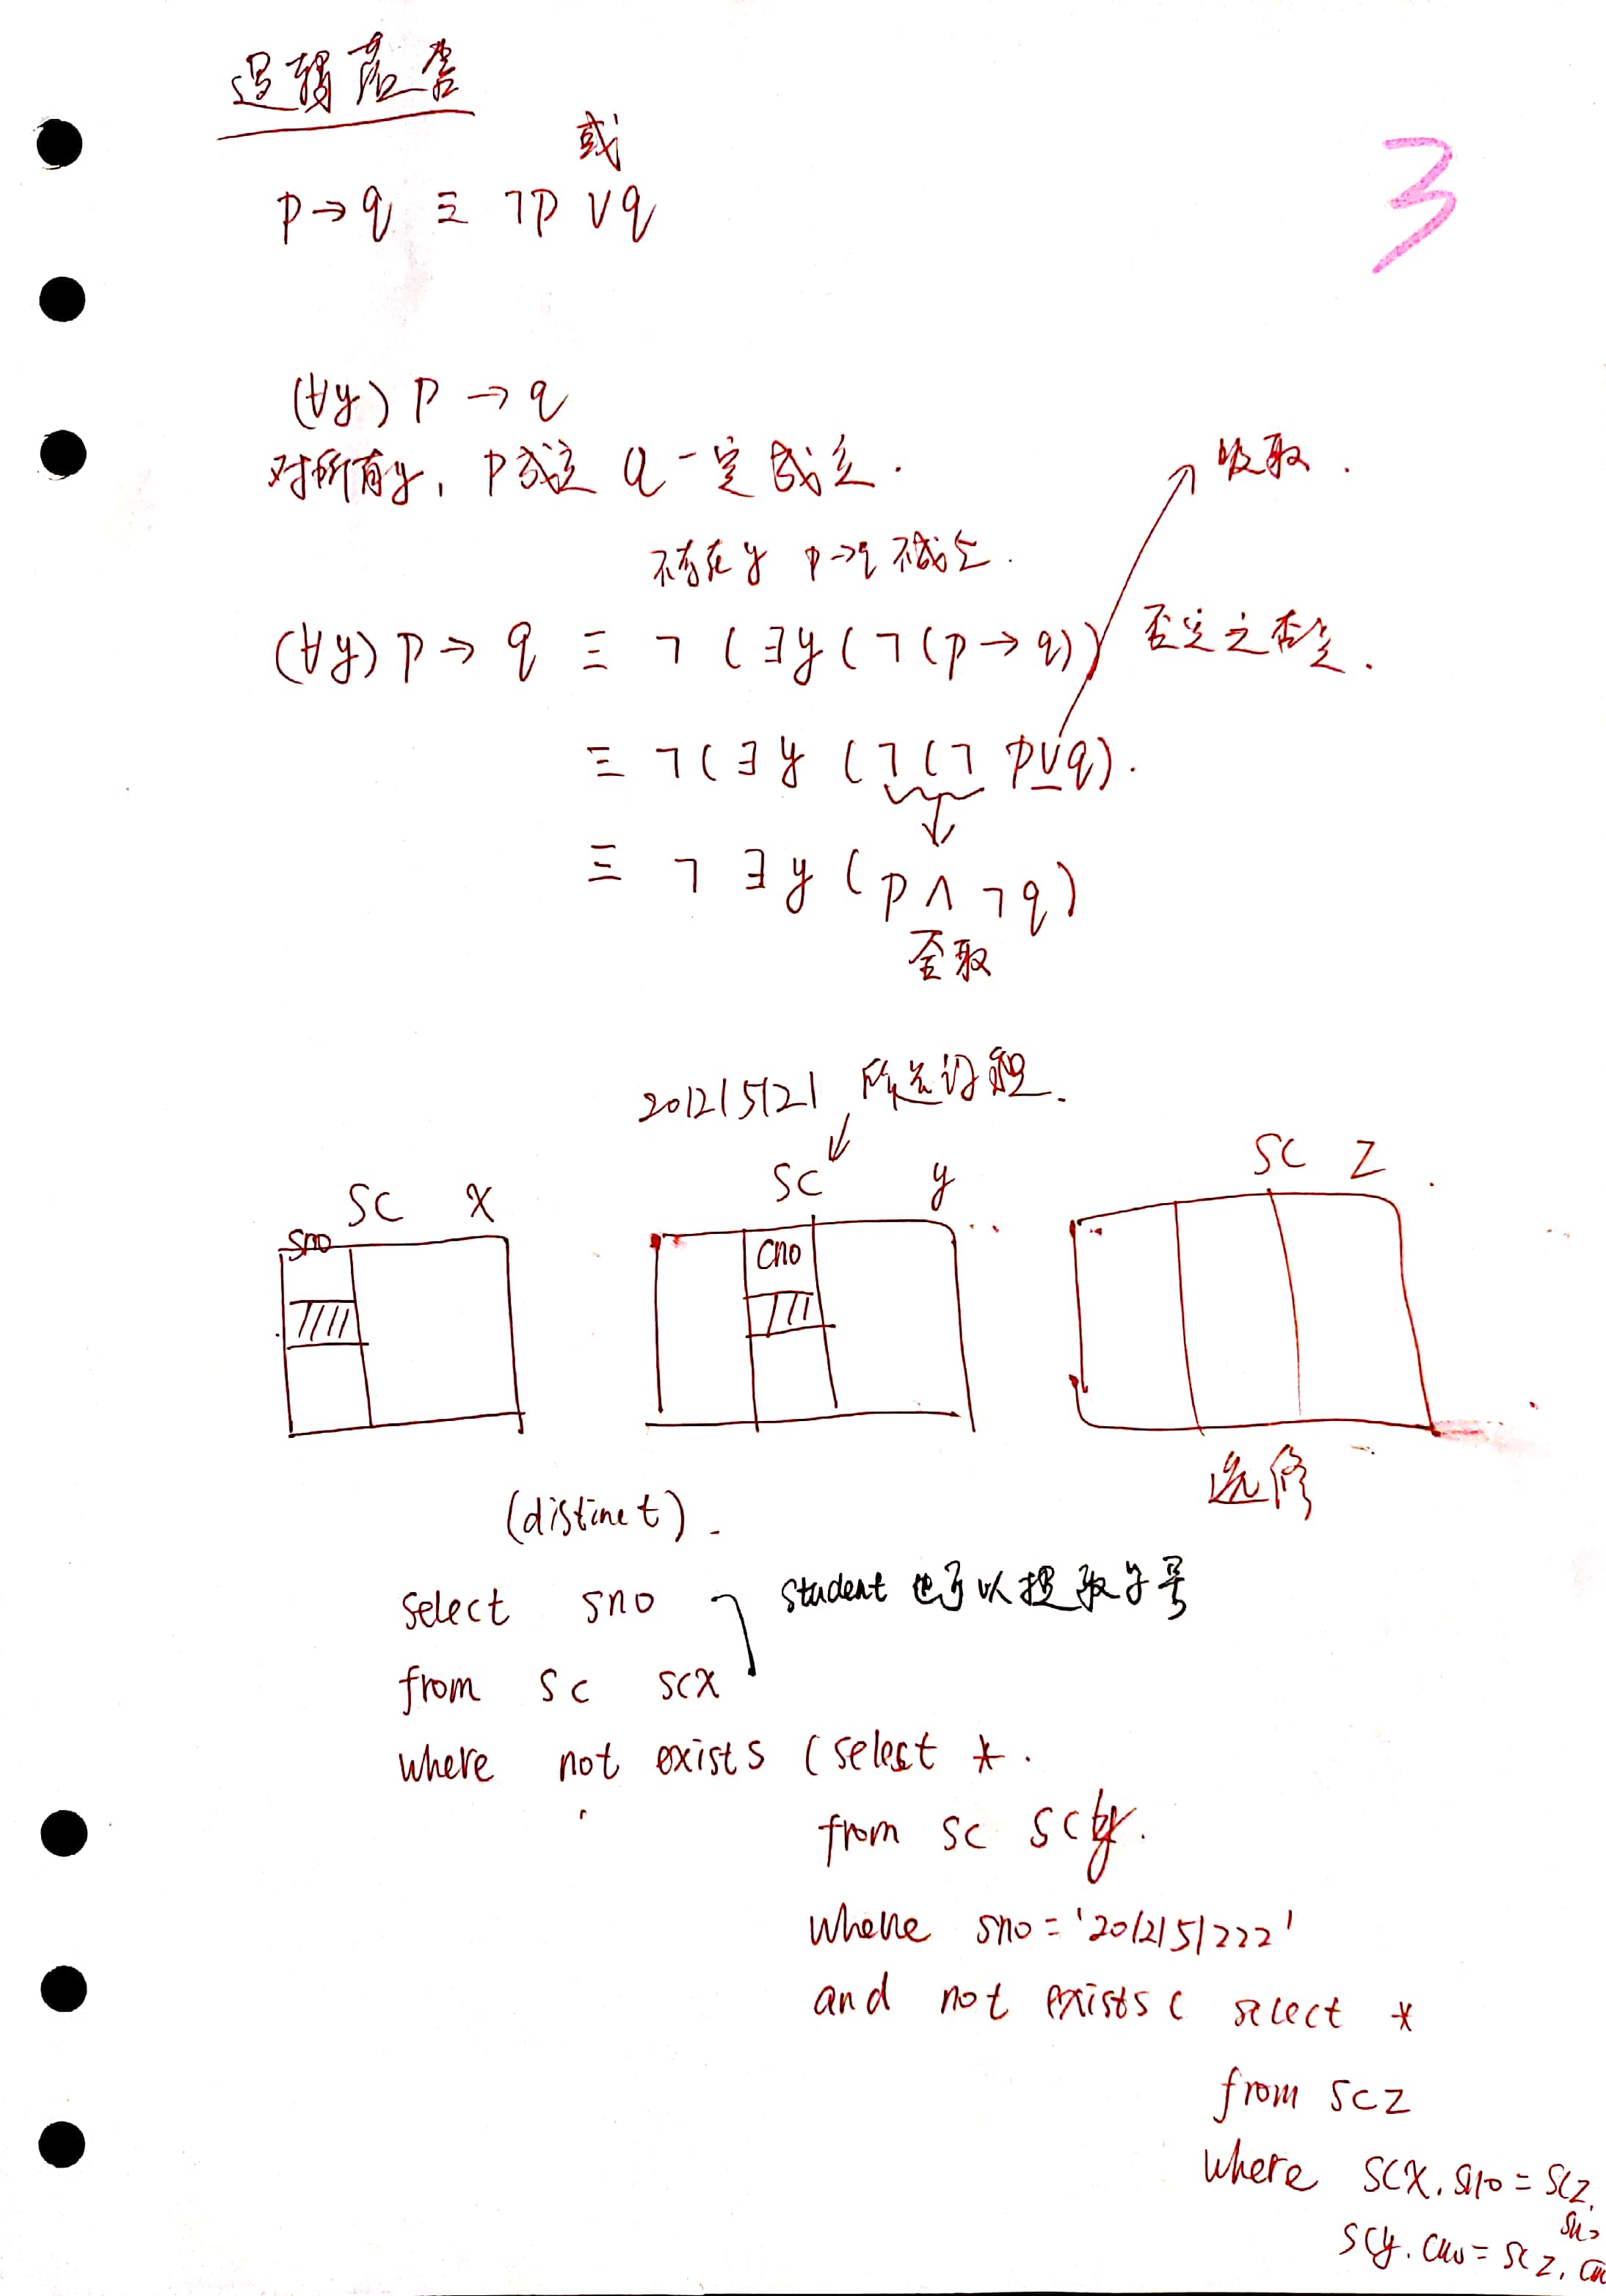 逻辑蕴含
3
或
p→q ≡ ¬p ∨q
(∀y) p → q
对所有y, p成立 q一定成立.
吸取.
不存在y p→q不成立.
(∀y) p → q ≡ ¬ (∃y(¬(p→q)) 否定之否定.
≡ ¬(∃y (¬(¬ p∨q).
≡ ¬ ∃y (p ∧ ¬q)
全取
201215121 所选课程.
SC X
SC y
SC Z
Sno
Cno
选修
(distinct).
select sno
student也可以提取学号
from sc scx
where not exists (select *.
from sc scy.
where sno='2012151222'
and not exists( select *
from scz
where scx.sno=scz.
sno
scy.cno=scz.cn